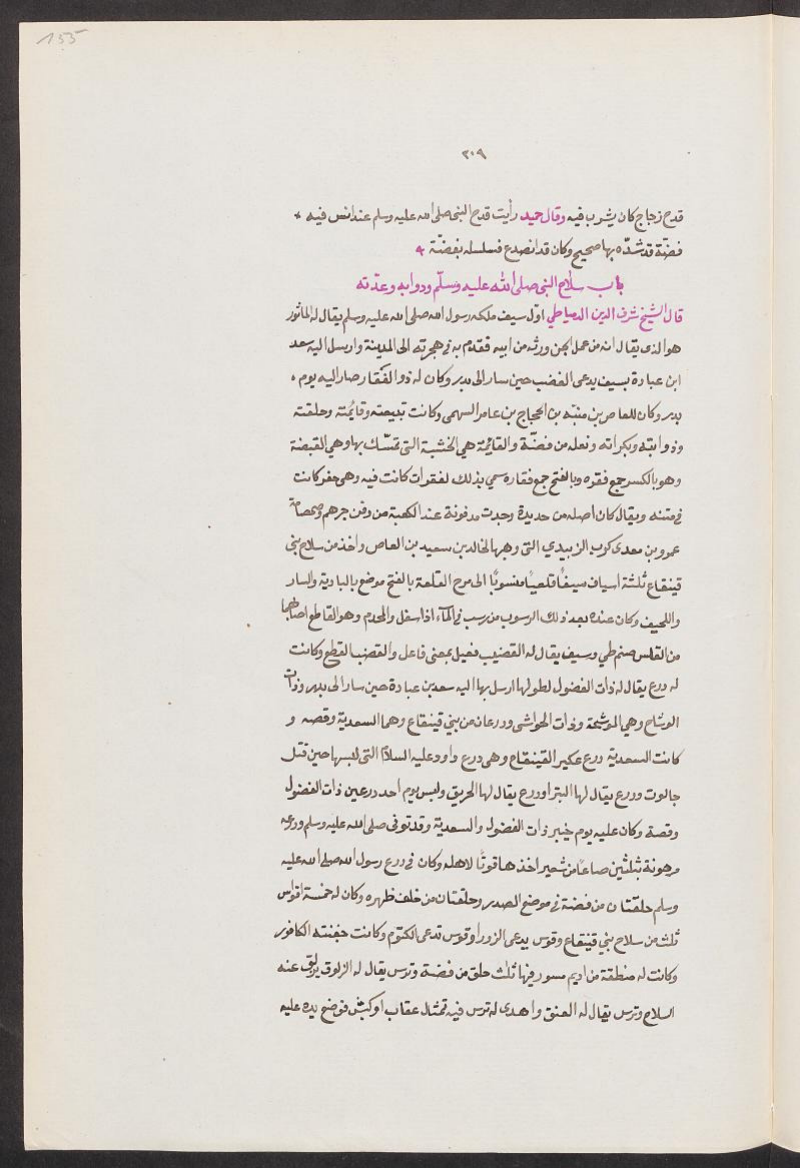 155
٢٠٩
قدح زجاج كان يشرب فيه وقال حميد رأيت قدح النبى صلى الله عليه وسلم عند انس فيه
فضّة قد شدّه بها صحيح وكان قد انصدع فسلسله بفضّة
باب سلاح النبى صلى الله عليه وسلّم ودوابه وعدّته
قال الشيخ شرف الدين الدمياطي اوّل سيف ملكه رسول الله صلى الله عليه وسلم يقال له الماثور
هو الذى يقال انه من عمل الجن ورثه من ابيه فقدم به فى هجرته الى المدينة وارسل اليه سعد
ابن عبادة بسيف يدعى العضب حين سار الى بدر وكان له ذو الفقار صار اليه يوم
بدر وكان للعاص بن منبّه بن الحجاج بن عامر السهمى وكانت قبيعته وقائمته وحلقته
وذوابته وبكراته ونعله من فضّة والقائمة هي الخشبة التى تمسّك بها وهي القبضة
وهو بالكسر جمع فقره وبالفتح جمع فقاره سمي بذلك لفقرات كانت فيه وهى حفر كانت
فى متنه ويقال كان اصله من حديدة وجدت مدفونة عند الكعبة من دفن جرهم وصمصامة
عمرو بن معدى كرب الزبيدي التى وهبها لخالد بن سعيد بن العاص واخذ من سلاح بنى
قينقاع ثلثة اسياف سيفًا قلعيًا منسوبًا الى مرج القلعة بالفتح موضع بالبادية والبتار
واللحيف وكان عنده بعد ذلك الرسوب من رسب فى المآء اذا سفل والمخدم وهو القاطع اصابهما
من الفلس صنم طي وسيف يقال له القضيب فعيل بمعنى فاعل والقضب القطع وكانت
له درع يقال له ذات الفضول لطولها ارسل بها اليه سعد بن عبادة حين سار الى بدر وذات
الوشاح وهي الموشحة وذات الحواشى ودرعان من بني قينقاع وهما السعدية وفضه و
كانت السعدية درع عكير القينقاع وهى درع داود عليه السلام التى لبسها حين قتل
جالوت ودرع يقال لها البترا ودرع يقال لها الخريق ولبس يوم احد درعين ذات الفضول
وفضة وكان عليه يوم خيبر ذات الفضول والسعدية وقد توفى صلى الله عليه وسلم ودرعه
مرهونة بثلثين صاعًا من شعير اخذها قوتًا لاهله وكان فى درع رسول الله صلى الله عليه
وسلم حلقتان من فضة فى موضع الصدر وحلقتان من خلف ظهره وكان له خمسة اقواس
ثلث من سلاح بنى قينقاع وقوس يدعى الزورا وقوس تدعى الكتوم وكانت جفنته الكافور
وكانت له منطقة من اديم مسور فيها ثلث حلق من فضة وترس يقال له الزلوق يزلق عنه
السلاح وترس يقال له العنق واهدى له ترس فيه تمثال عقاب او كبش فوضع يده عليه